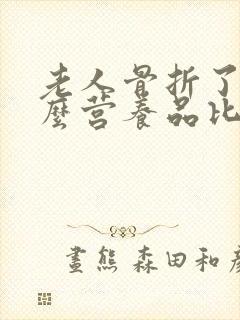 老人骨折了
麼营养品比
畫熊 森田和彦